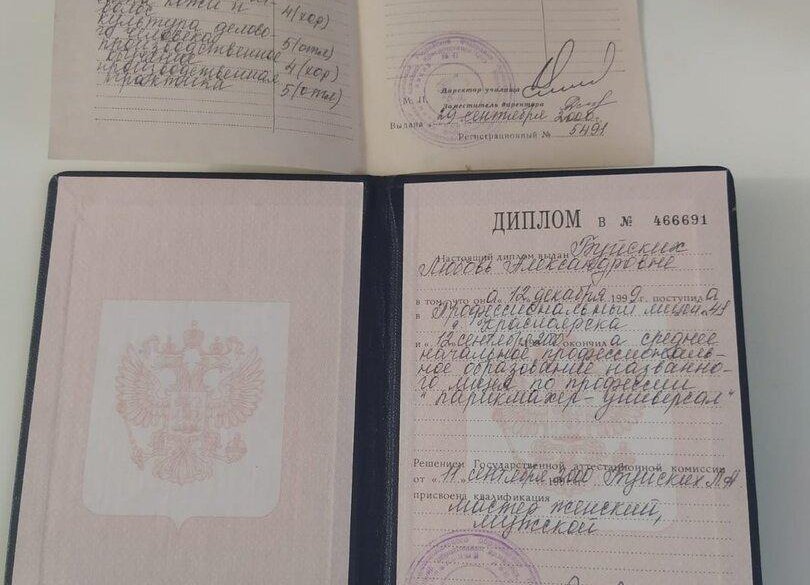 кожи и
4(хор)
культура делово-
го человека
5(отл)
производственное
обучение
4(хор)
производственная
практика
5(отл)
Директор училища
М. П.
Заместитель директора
Выдана 29 сентября 2000г.
Регистрационный № 5491
ДИПЛОМ В № 466691
Настоящий диплом выдан Буйских
Любовь Александровне
в том, что она 12 декабря 1999 г. поступила
в Профессиональный лицей
г. Красноярска
и 12 сентября 2000 окончила среднее
начальное профессиональ-
ное образование названно-
го лицея по профессии
"парикмахер-универсал"
Решением Государственной аттестационной комиссии
от „11 сентября 2000 Буйских Л А
присвоена квалификация
мастер женский,
мужской